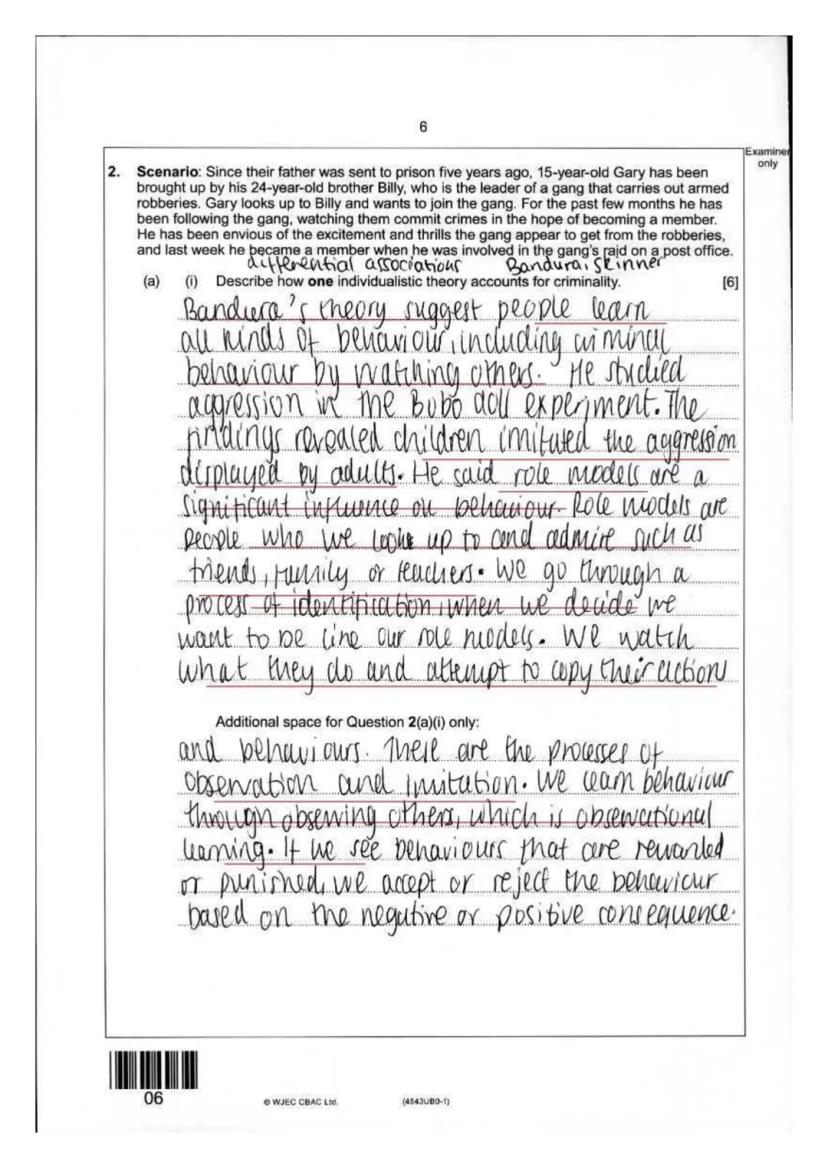 6
Examiner
only
2. Scenario: Since their father was sent to prison five years ago, 15-year-old Gary has been
brought up by his 24-year-old brother Billy, who is the leader of a gang that carries out armed
robberies. Gary looks up to Billy and wants to join the gang. For the past few months he has
been following the gang, watching them commit crimes in the hope of becoming a member.
He has been envious of the excitement and thrills the gang appear to get from the robberies,
and last week he became a member when he was involved in the gang's raid on a post office.
differential associations Bandura, Skinner
(a) (i) Describe how one individualistic theory accounts for criminality. [6]
Bandura's theory suggest people learn
all kinds of behaviour, including criminal
behaviour by watching others. He studied
aggression in the Bobo doll experiment. The
findings revealed children imitated the aggression
displayed by adults. He said role models are a
significant influence on behaviour. Role models are
people who we look up to and admire such as
friends, family or teachers. We go through a
process of identification, when we decide we
want to be like our role models. We watch
what they do and attempt to copy their actions
Additional space for Question 2(a)(i) only:
and behaviours. These are the processes of
observation and imitation. We learn behaviour
through observing others, which is observational
learning. If we see behaviours that are rewarded
or punished, we accept or reject the behaviour
based on the negative or positive consequence.
06
© WJEC CBAC Ltd.
(4543UB0-1)